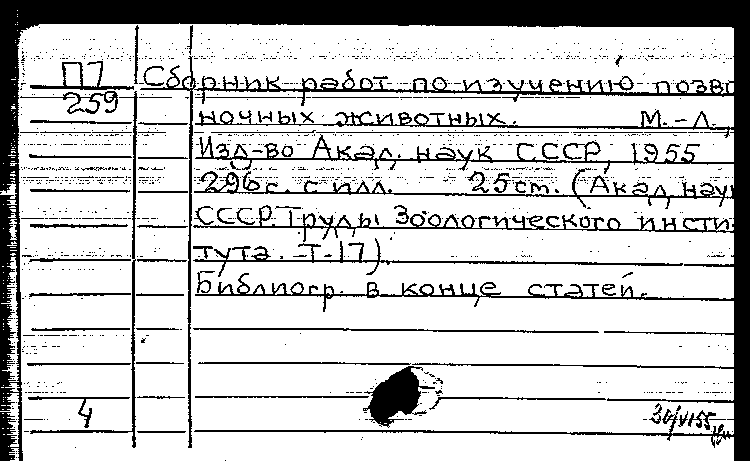 П7 Сборник работ по изучению позво
259 ночных животных. М.-Л.,
Изд-во Акад. наук СССР, 1955
296с. с илл. 25см. (Акад. наук
СССР. Труды Зоологического инсти-
тута. Т-17).
Библиогр. в конце статей.
4 30/VI55